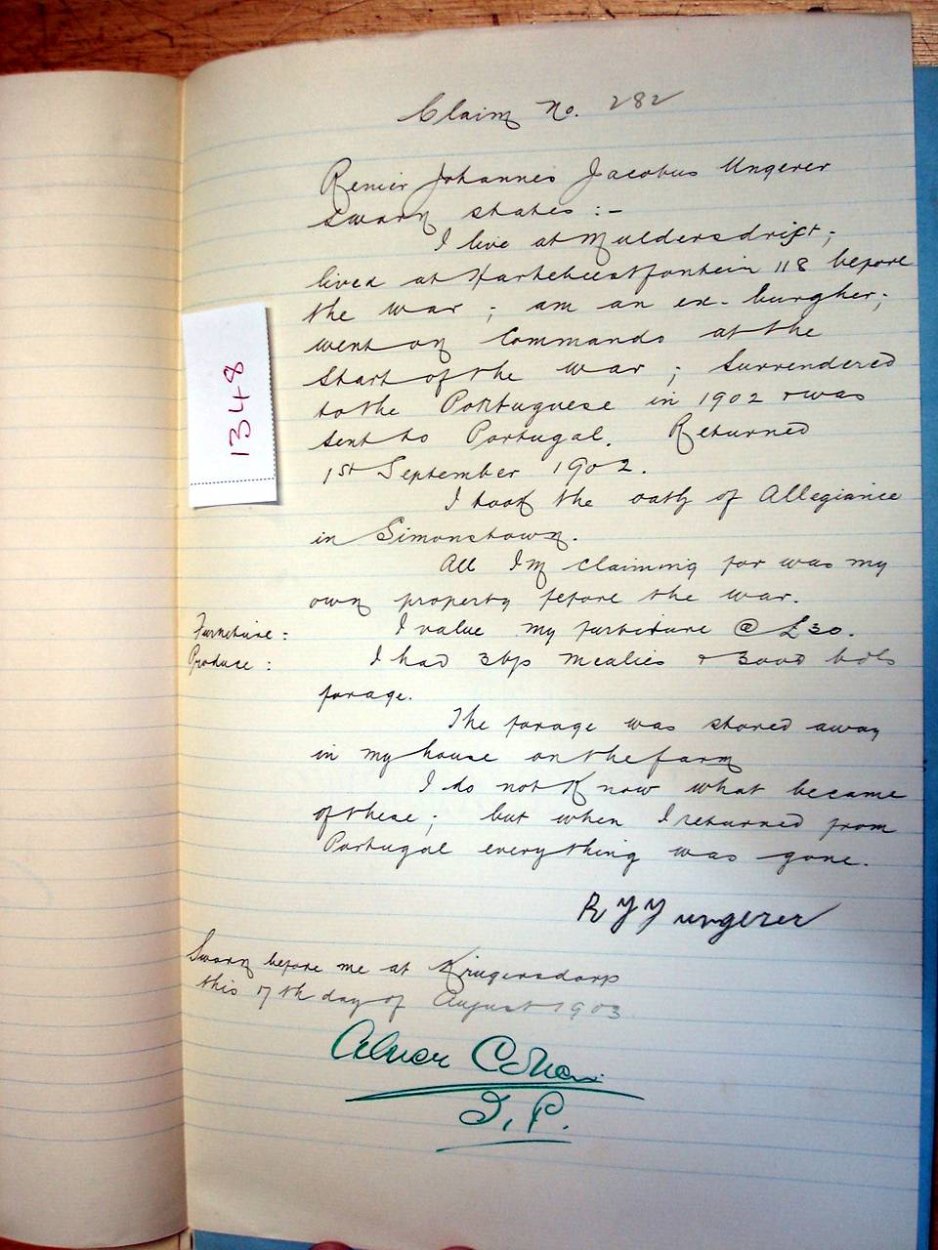 Claim No. 282
Renier Johannes Jacobus Ungerer
sworn states :-
I live at Muldersdrift;
lived at Hartebeestfontein 118 before
the war ; am an ex-burgher;
went on Commando at the
start of the war ; surrendered
to the Portuguese in 1902 & was
sent to Portugal. Returned
1st September 1902.
I took the oath of Allegiance
in Simonstown.
All I'm claiming for was my
own property before the war.
Furniture : I value my furniture @ £30.
Produce : I had 3 bgs mealies & 3000 bdls
forage.
The forage was stored away
in my house on the farm
I do not know what became
of these; but when I returned from
Portugal everything was gone.
R J J ungerer
Sworn before me at Krugersdorp
this 17th day of August 1903
Abner Cohen
J. P.
1348